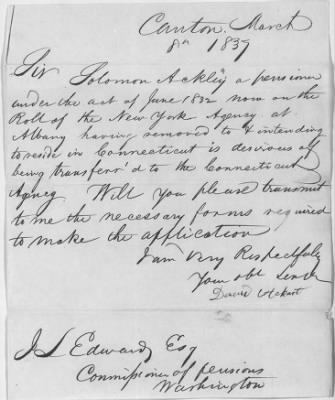 Canton, March
8th 1837
Sir Solomon Ackley a pensioner
under the act of June 1832 now on the
Roll of the New York Agency at
Albany having removed to & intending
to reside in Connecticut is desirous of
being transferr'd to the Connecticut
Agncy Will you please transmit
to me the necessary forms required
to make the application
I am Very Respectfully
Your obt Servt
David
J L Edwards Esq
Commissioner of pensions
Washington